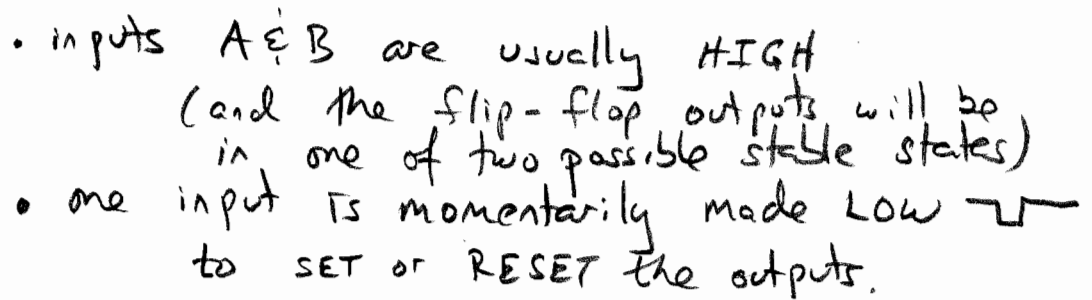 • inputs A & B are usually HIGH
(and the flip-flop outputs will be
in one of two possible stable states)
• one input is momentarily made LOW
to SET or RESET the outputs.